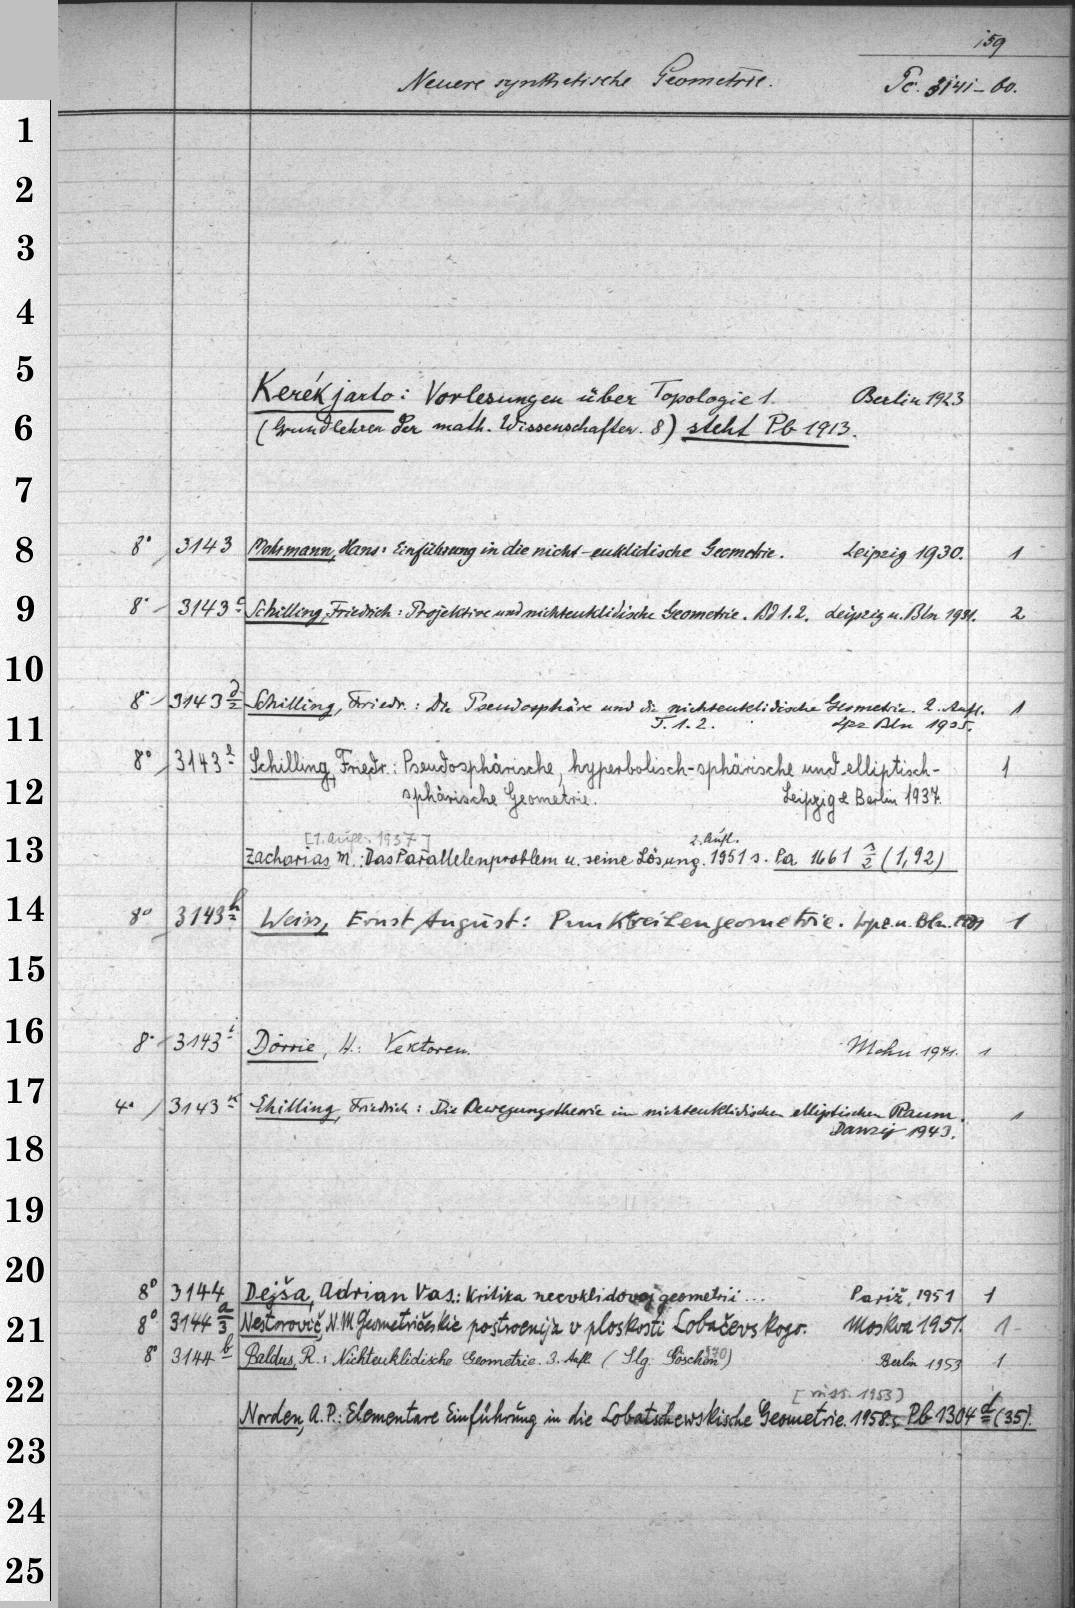 159
Neuere synthetische Geometrie. Pc. 3141–60.
1
2
3
4
5
Kerékjarto: Vorlesungen über Topologie 1. Berlin 1923
6
(Grundlehren der math. Wissenschaften. 8) steht Pb 1913.
7
8
8° 3143 Mohrmann, Hans: Einführung in die nicht-euklidische Geometrie. Leipzig 1930. 1
9
8° 3143 c Schilling, Friedrich: Projektive und nichteuklidische Geometrie. Bd 1.2. Leipzig u. Bln 1931. 2
10
8° 3143 d/2 Schilling, Friedr.: Die Pseudosphäre und die nichteuklidische Geometrie. 2. Aufl. 1
11
T. 1.2. Lpz Bln 1935.
8° 3143 Schilling, Friedr.: Pseudosphärische, hyperbolisch-sphärische und elliptisch- 1
12
sphärische Geometrie. Leipzig & Berlin 1937.
[1. Aufl. 1937] 2. Aufl.
13
Zacharias M.: Das Parallelenproblem u. seine Lösung. 1951 s. Pa 1661 s/2 (1,92)
14
8° 3143 h Weiss, Ernst August: Punktreihengeometrie. Lpz. u. Bln. 1939 1
15
16
8° 3143 i Dörrie, H.: Vektoren. Mchn 1941. 1
17
4° 3143 k Schilling, Friedrich: Die Bewegungstheorie im nichteuklidischen elliptischen Raum. 1
18
Danzig 1943.
19
20
8° 3144 Dejša, Adrian Vas.: Kritika neevklidovoj geometrii ... Pariž, 1951 1
21
8° 3144 a/3 Nestorovič, N. M. Geometričeskie postroenija v ploskosti Lobačevskogo. Moskva 1951. 1
8° 3144 b Baldus, R.: Nichteuklidische Geometrie. 3. Aufl. (Slg Göschen 970) Berlin 1953 1
22
[russ. 1953]
Norden, A. P.: Elementare Einführung in die Lobatschewskische Geometrie. 1958. s. Pb 1304 d (35).
23
24
25